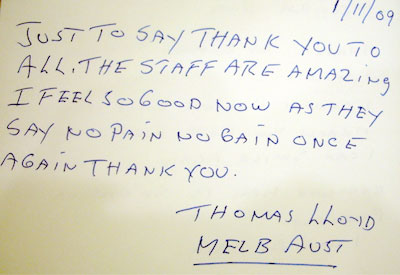 1/11/09
JUST TO SAY THANK YOU TO
ALL. THE STAFF ARE AMAZING
I FEEL SO GOOD NOW AS THEY
SAY NO PAIN NO GAIN ONCE
AGAIN THANK YOU.
THOMAS LLOYD
MELB AUST